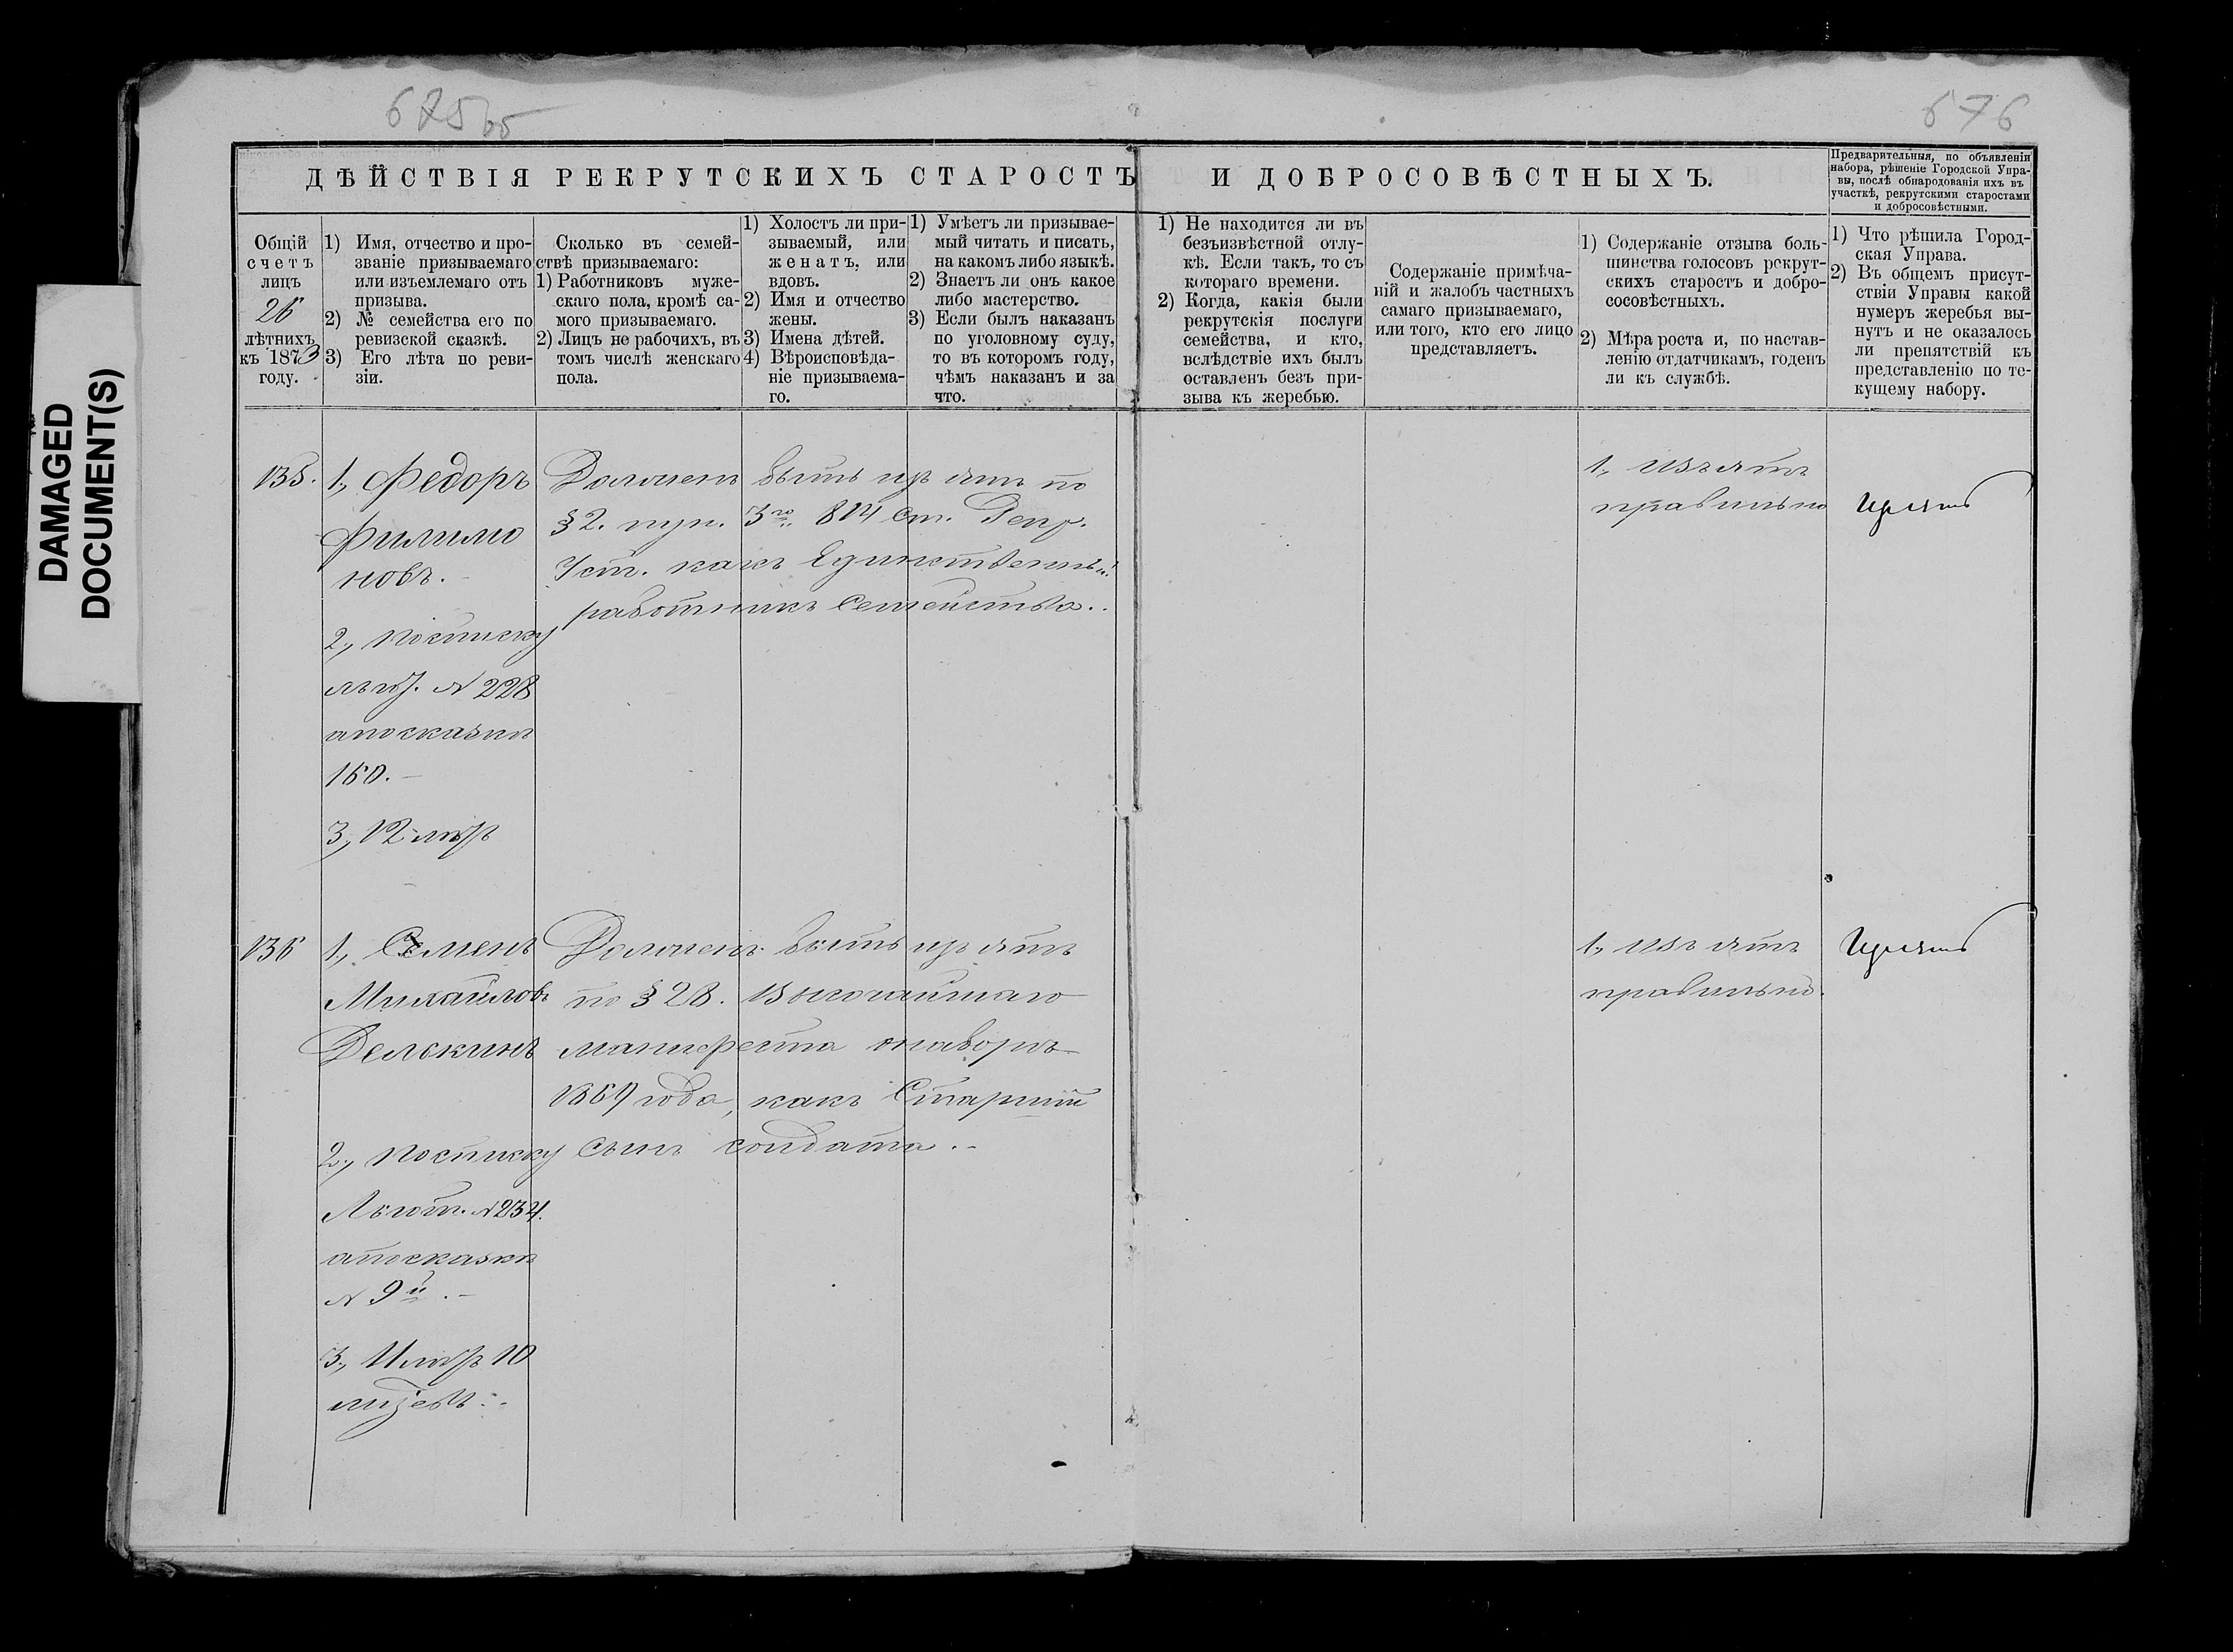 675об
676
DAMAGED
DOCUMENT(S)
ДѢЙСТВІЯ РЕКРУТСКИХЪ СТАРОСТЪ И ДОБРОСОВѢСТНЫХЪ.
Предварительныя, по объявленіи
набора, рѣшеніе Городской Упра-
вы, послѣ обнародованія ихъ въ
участкѣ, рекрутскими старостами
и добросовѣстными.
Общій
счетъ
лицъ
26
лѣтнихъ
къ 1873
году.
1) Имя, отчество и про-
званіе призываемаго
или изъемлемаго отъ
призыва.
2) № семейства его по
ревизской сказкѣ.
3) Его лѣта по реви-
зіи.
Сколько въ семей-
ствѣ призываемаго:
1) Работниковъ муже-
скаго пола, кромѣ са-
мого призываемаго.
2) Лицъ не рабочихъ, въ
томъ числѣ женскаго
пола.
1) Холостъ ли при-
зываемый, или
женатъ, или
вдовъ.
2) Имя и отчество
жены.
3) Имена дѣтей.
4) Вѣроисповѣда-
ніе призываема-
го.
1) Умѣетъ ли призывае-
мый читать и писать,
на какомъ либо языкѣ.
2) Знаетъ ли онъ какое
либо мастерство.
3) Если былъ наказанъ
по уголовному суду,
то въ которомъ году,
чѣмъ наказанъ и за
что.
1) Не находится ли въ
безъизвѣстной отлу-
кѣ. Если такъ, то съ
котораго времени.
2) Когда, какія были
рекрутскія послуги
семейства, и кто,
вслѣдствіе ихъ былъ
оставленъ безъ при-
зыва къ жеребью.
Содержаніе примѣча-
ній и жалобъ частныхъ
самаго призываемаго,
или того, кто его лицо
представляетъ.
1) Содержаніе отзыва боль-
шинства голосовъ рекрут-
скихъ старостъ и добро-
сосовѣстныхъ.
2) Мѣра роста и, по настав-
ленію отдатчикамъ, годенъ
ли къ службѣ.
1) Что рѣшила Город-
ская Управа.
2) Въ общемъ присут-
ствіи Управы какой
нумеръ жеребья вы-
нутъ и не оказалось
ли препятствій къ
представленію по те-
кущему набору.
135.
1., Федоръ
Филимо
новъ.
2., Посписку
льгот. № 228
апосказкѣ
160.
3., 12 лѣтъ
Долженъ быть изъятъ по
§ 2. пун. 3го 814 ст. Рекр.
Уст. какъ Единственный
работникъ Семейства.
1., Изъятъ
правильно
Изъять
136
1., Семенъ
Михайловъ
Делькинъ
2., Посписку
Льгот. № 234.
апосказкѣ
№ 9й.
3., 11 лѣтъ 10
Долженъ быть изъятъ
по § 28. Высочайшаго
манифеста онаборѣ
1869 года, какъ Старшій
Сынъ солдата.
1., Изъятъ
правильно.
Изъять